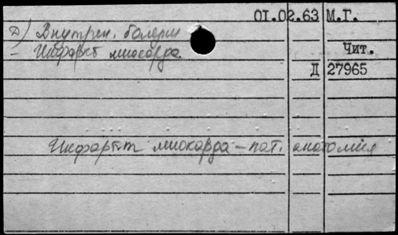 01.02.63 М.Г.
а) Внутрен. болезни
- Инфаркт миокарда.
Чит.
Д 27965
Инфаркт миокарда – пат. анатомия